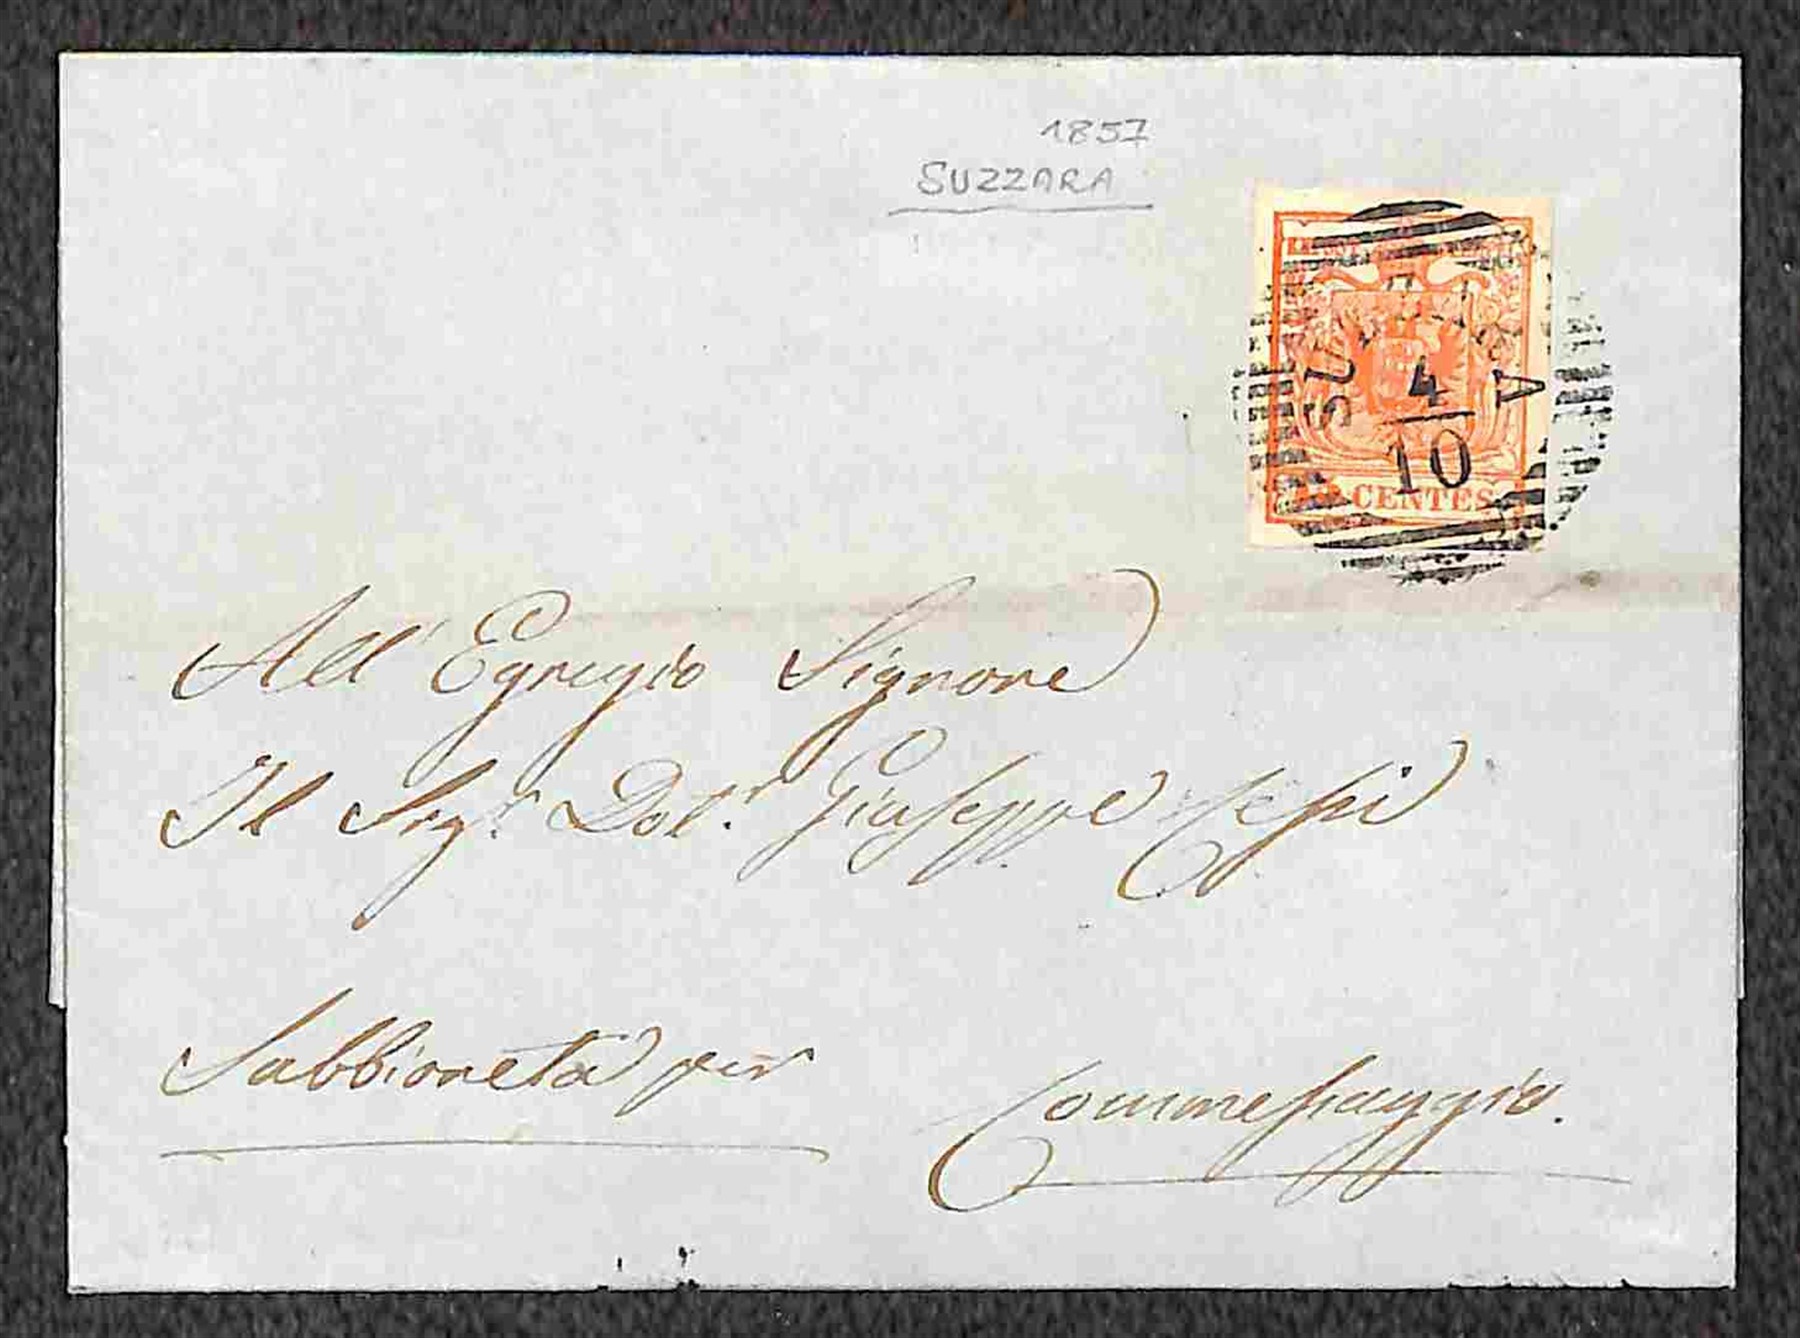 1857
SUZZARA
SUZZARA
4
10
15 CENTES
All' Egregio Signore
Il Sigr. Dotr. Giuseppe
Sabbioneta per
Commessaggio.